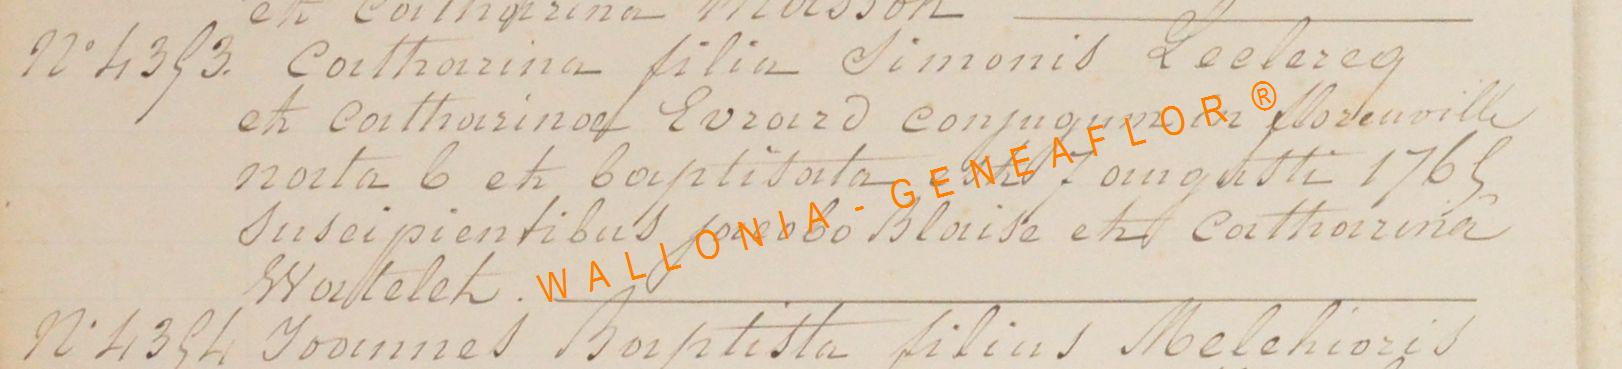 et Catharina Masson
N° 4353. Catharina filia Simonis Leclercq
et Catharinae Evrard conjugum in florenville
nata 6 et baptisata est 7 augusti 1765
suscipientibus jacobo Blaise et Catharinâ
Watelet.
WALLONIA - GENEAFLOR ®
N° 4354 Joannes Baptista filius Melchioris